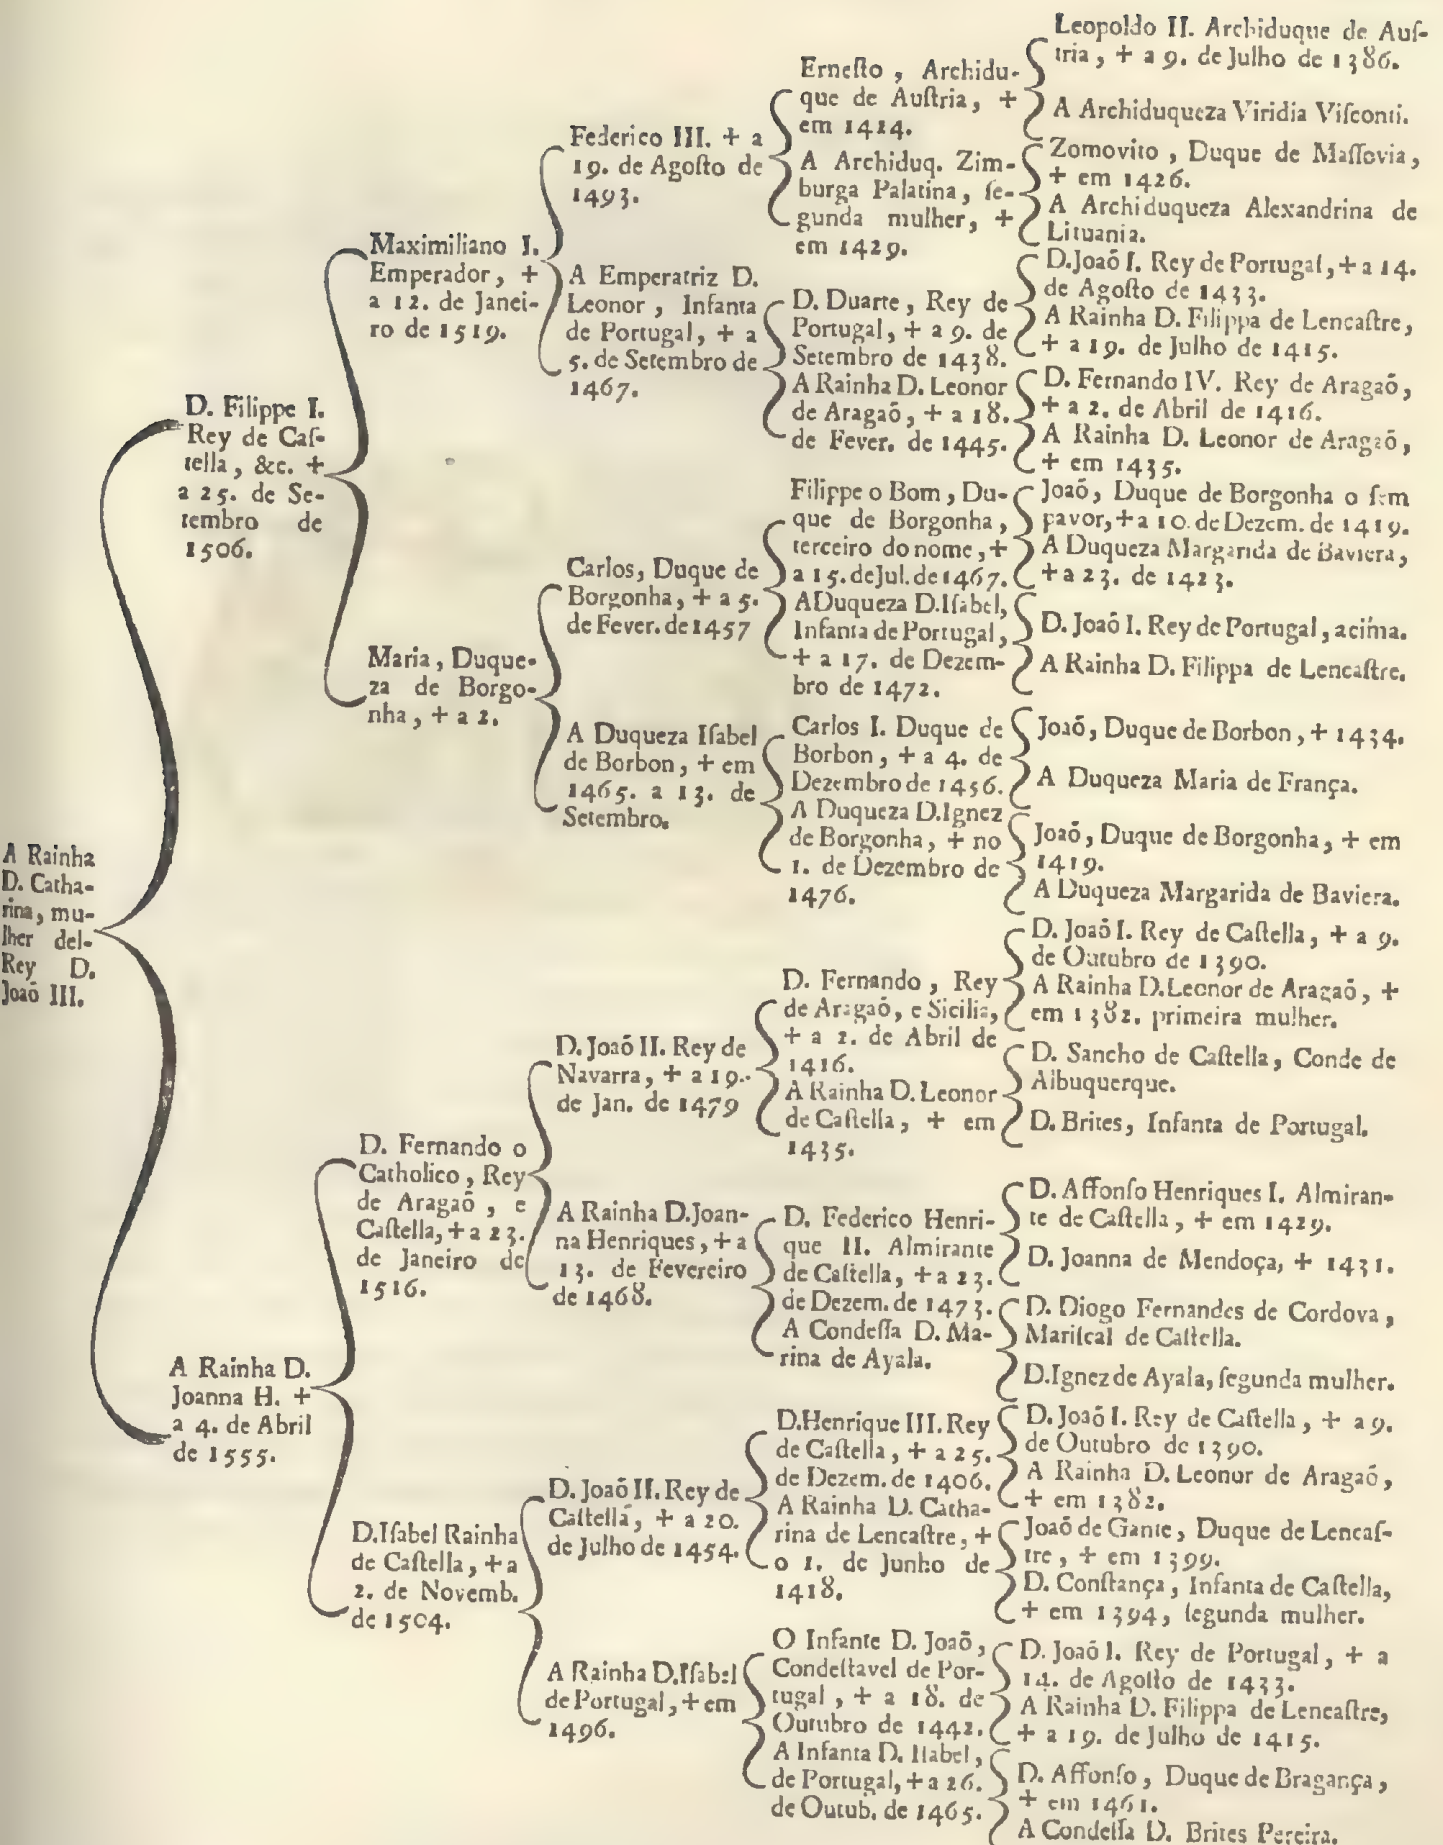 A Rainha
D. Catha-
rina, mu-
lher del-
Rey D.
Joaõ III.
D. Filippe I.
Rey de Caſ-
tella, &c. +
a 25. de Se-
tembro de
1506.
A Rainha D.
Joanna H. +
a 4. de Abril
de 1555.
Maximiliano I.
Emperador, +
a 12. de Janei-
ro de 1519.
Maria, Duque-
za de Borgo-
nha, + a 2.
D. Fernando o
Catholico, Rey
de Aragaõ, e
Caſtella, + a 23.
de Janeiro de
1516.
D. Iſabel Rainha
de Caſtella, + a
2. de Novemb.
de 1504.
Federico III. + a
19. de Agoſto de
1493.
A Emperatriz D.
Leonor, Infanta
de Portugal, + a
5. de Setembro de
1467.
Carlos, Duque de
Borgonha, + a 5.
de Fever. de 1457
A Duqueza Iſabel
de Borbon, + em
1465. a 13. de
Setembro.
D. Joaõ II. Rey de
Navarra, + a 19.
de Jan. de 1479
A Rainha D. Joan-
na Henriques, + a
13. de Fevereiro
de 1468.
D. Joaõ II. Rey de
Caſtella, + a 20.
de Julho de 1454.
A Rainha D. Iſabel
de Portugal, + em
1496.
Erneſto, Archidu-
que de Auſtria, +
em 1424.
A Archiduq. Zim-
burga Palatina, ſe-
gunda mulher, +
em 1429.
D. Duarte, Rey de
Portugal, + a 9. de
Setembro de 1438.
A Rainha D. Leonor
de Aragaõ, + a 18.
de Fever. de 1445.
Filippe o Bom, Du-
que de Borgonha,
terceiro do nome, +
a 15. de Jul. de 1467.
A Duqueza D. Iſabel,
Infanta de Portugal,
+ a 17. de Dezem-
bro de 1472.
Carlos I. Duque de
Borbon, + a 4. de
Dezembro de 1456.
A Duqueza D. Ignez
de Borgonha, + no
1. de Dezembro de
1476.
D. Fernando, Rey
de Aragaõ, e Sicilia,
+ a 2. de Abril de
1416.
A Rainha D. Leonor
de Caſtella, + em
1435.
D. Federico Henri-
que II. Almirante
de Caſtella, + a 23.
de Dezem. de 1473.
A Condeſſa D. Ma-
rina de Ayala.
D. Henrique III. Rey
de Caſtella, + a 25.
de Dezem. de 1406.
A Rainha D. Catha-
rina de Lencaſtre, +
o 1. de Junho de
1418.
O Infante D. Joaõ,
Condeſtavel de Por-
tugal, + a 18. de
Outubro de 1442.
A Infanta D. Iſabel,
de Portugal, + a 26.
de Outub. de 1465.
Leopoldo II. Archiduque de Auſ-
tria, + a 9. de Julho de 1386.
A Archiduqueza Viridia Viſconti.
Zomovito, Duque de Maſſovia,
+ em 1426.
A Archiduqueza Alexandrina de
Lituania.
D. Joaõ I. Rey de Portugal, + a 14.
de Agoſto de 1433.
A Rainha D. Filippa de Lencaſtre,
+ a 19. de Julho de 1415.
D. Fernando IV. Rey de Aragaõ,
+ a 2. de Abril de 1416.
A Rainha D. Leonor de Aragaõ,
+ em 1435.
Joaõ, Duque de Borgonha o ſem
pavor, + a 10. de Dezem. de 1419.
A Duqueza Margarida de Baviera,
+ a 23. de 1423.
D. Joaõ I. Rey de Portugal, acima.
A Rainha D. Filippa de Lencaſtre.
Joaõ, Duque de Borbon, + 1434.
A Duqueza Maria de França.
Joaõ, Duque de Borgonha, + em
1419.
A Duqueza Margarida de Baviera.
D. Joaõ I. Rey de Caſtella, + a 9.
de Outubro de 1390.
A Rainha D. Leonor de Aragaõ, +
em 1382. primeira mulher.
D. Sancho de Caſtella, Conde de
Albuquerque.
D. Brites, Infanta de Portugal.
D. Affonſo Henriques I. Almiran-
te de Caſtella, + em 1429.
D. Joanna de Mendoça, + 1431.
D. Diogo Fernandes de Cordova,
Mariſcal de Caſtella.
D. Ignez de Ayala, ſegunda mulher.
D. Joaõ I. Rey de Caſtella, + a 9.
de Outubro de 1390.
A Rainha D. Leonor de Aragaõ,
+ em 1382.
Joaõ de Gante, Duque de Lencaſ-
tre, + em 1399.
D. Conſtança, Infanta de Caſtella,
+ em 1394, ſegunda mulher.
D. Joaõ I. Rey de Portugal, + a
14. de Agoſto de 1433.
A Rainha D. Filippa de Lencaſtre,
+ a 19. de Julho de 1415.
D. Affonſo, Duque de Bragança,
+ em 1461.
A Condeſſa D. Brites Pereira.